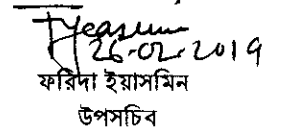 26-02-2019
ফরিদা ইয়াসমিন
উপসচিব